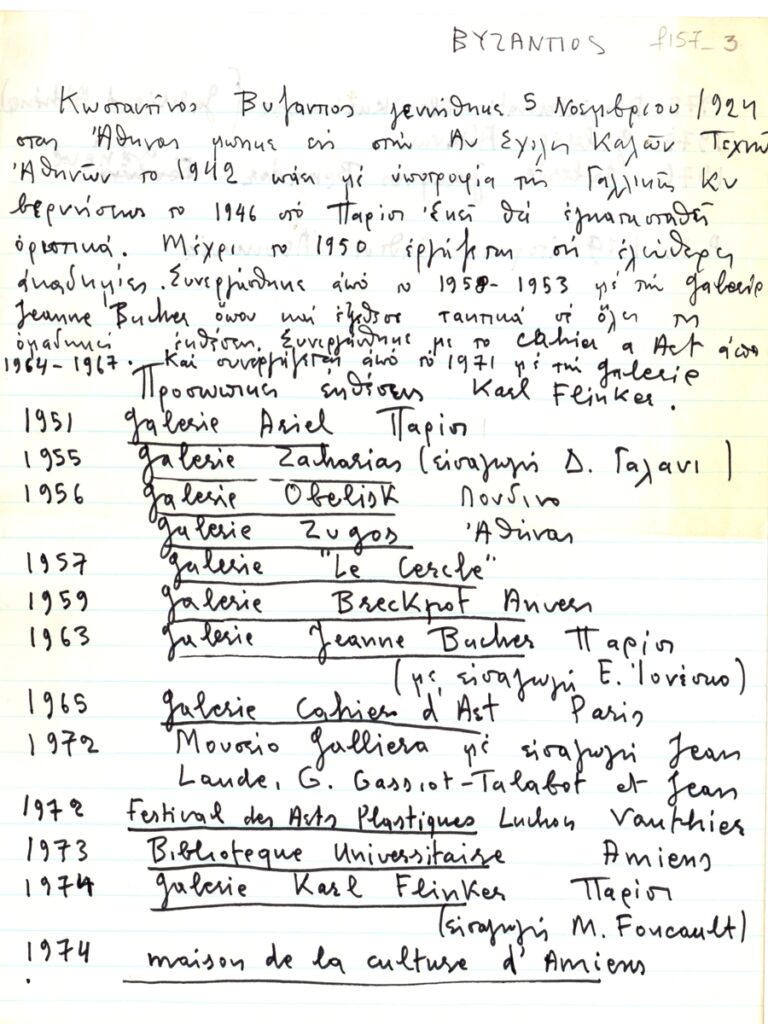 ΒΥΖΑΝΤΙΟΣ f157_3
Κωσταντίνος Βυζαντιος γεννήθηκε 5 Νοεμβριου 1924
στας Ἀθηνας μπηκε εις στην Αν Σχολη Καλῶν Τεχνῶν
Ἀθηνῶν το 1942 πάει μέ ὑποτροφία τῆς Γαλλικῆς Κυ
βερνήσεως το 1946 στό Παρίσι ἐκεῖ θά ἐγκατασταθεῖ
ὁριστικά. Μέχρι το 1950 ἐργάζεται στή ἐλεύθερες
ἀκαδημίες. Συνεργάσθηκε ἀπό το 1950-1953 μέ τήν galerie
Jeanne Bucher ὅπου καί ἐξέθεσε τακτικά σέ ὅλες τις
ὁμαδικές ἐκθέσεις. Συνεργάσθηκε με το Cahier a Art ἀπο
1964-1967. Και συνεργάζεται ἀπό τό 1971 μέ τήν galerie
Προσωπικες εκθέσεις Karl Flinker.
1951 galerie Ariel Παρίσι
1955 galerie Zacharias (εἰσαγωγή Δ. Γαλανι)
1956 galerie Obelisk Λονδινο
galerie Zugos Ἀθήνας
1957 galerie "Le Cercle"
1959 galerie Breckpot Anvers
1963 galerie Jeanne Bucher Παρίσι
(μέ εἰσαγωγή Ε. Ἰονέσκο)
1965 galerie Cahier d'Art Paris
1972 Μουσείο Galliera μέ εἰσαγωγή Jean
Laude, G. Gassiot-Talabot et Jean
1972 Festival des Arts Plastiques Luchon Vauthier
1973 Biblioteque Universitaire Amiens
1974 galerie Karl Flinker Παρίσι
(εἰσαγωγή M. Foucault)
1974 maison de la culture d'Amiens